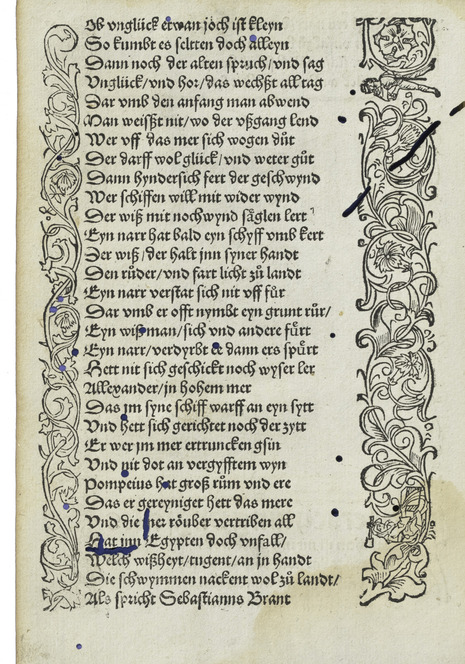 Ob vnglück etwan joch ist kleyn
So kumbt es seltten doch alleyn
Dann noch der alten spruch/vnd sag
Vnglück/vnd hor/das wechßt all tag
Dar vmb den anfang man abwend
Man weißt nit/wo der vßgang lend
Wer vff das mer sich wogen důt
Der darff wol glück/vnd weter gůt
Dann hyndersich fert der geschwynd
Wer schiffen will mit wider wynd
Der wiß mit nochwynd säglen lert
Eyn narr hat bald eyn schyff vmb kert
Der wiß/der halt jnn syner handt
Den růder/vnd fart licht zů landt
Eyn narr verstat sich nit vff fůr
Dar vmb er offt nymbt eyn grunt růr/
Eyn wißman/sich vnd andere fůrt
Eyn narr/verdyrbt ee dann ers spůrt
Hett nit sich geschickt noch wyser ler
Allexander/in hohem mer
Das jm syne schiff warff an eyn sytt
Vnd hett sich gerichtet noch der zytt
Er wer jm mer ertruncken gsin
Vnd nit dot an vergyfftem wyn
Pompeius hat groß rům vnd ere
Das er gereyniget hett das mere
Vnd die mer röuber vertriben all
Hat jnn Egypten doch vnfall/
Welch wißheyt/tugent/an jn handt
Die schwymmen nackent wol zů landt/
Als spricht Sebastianns Brant